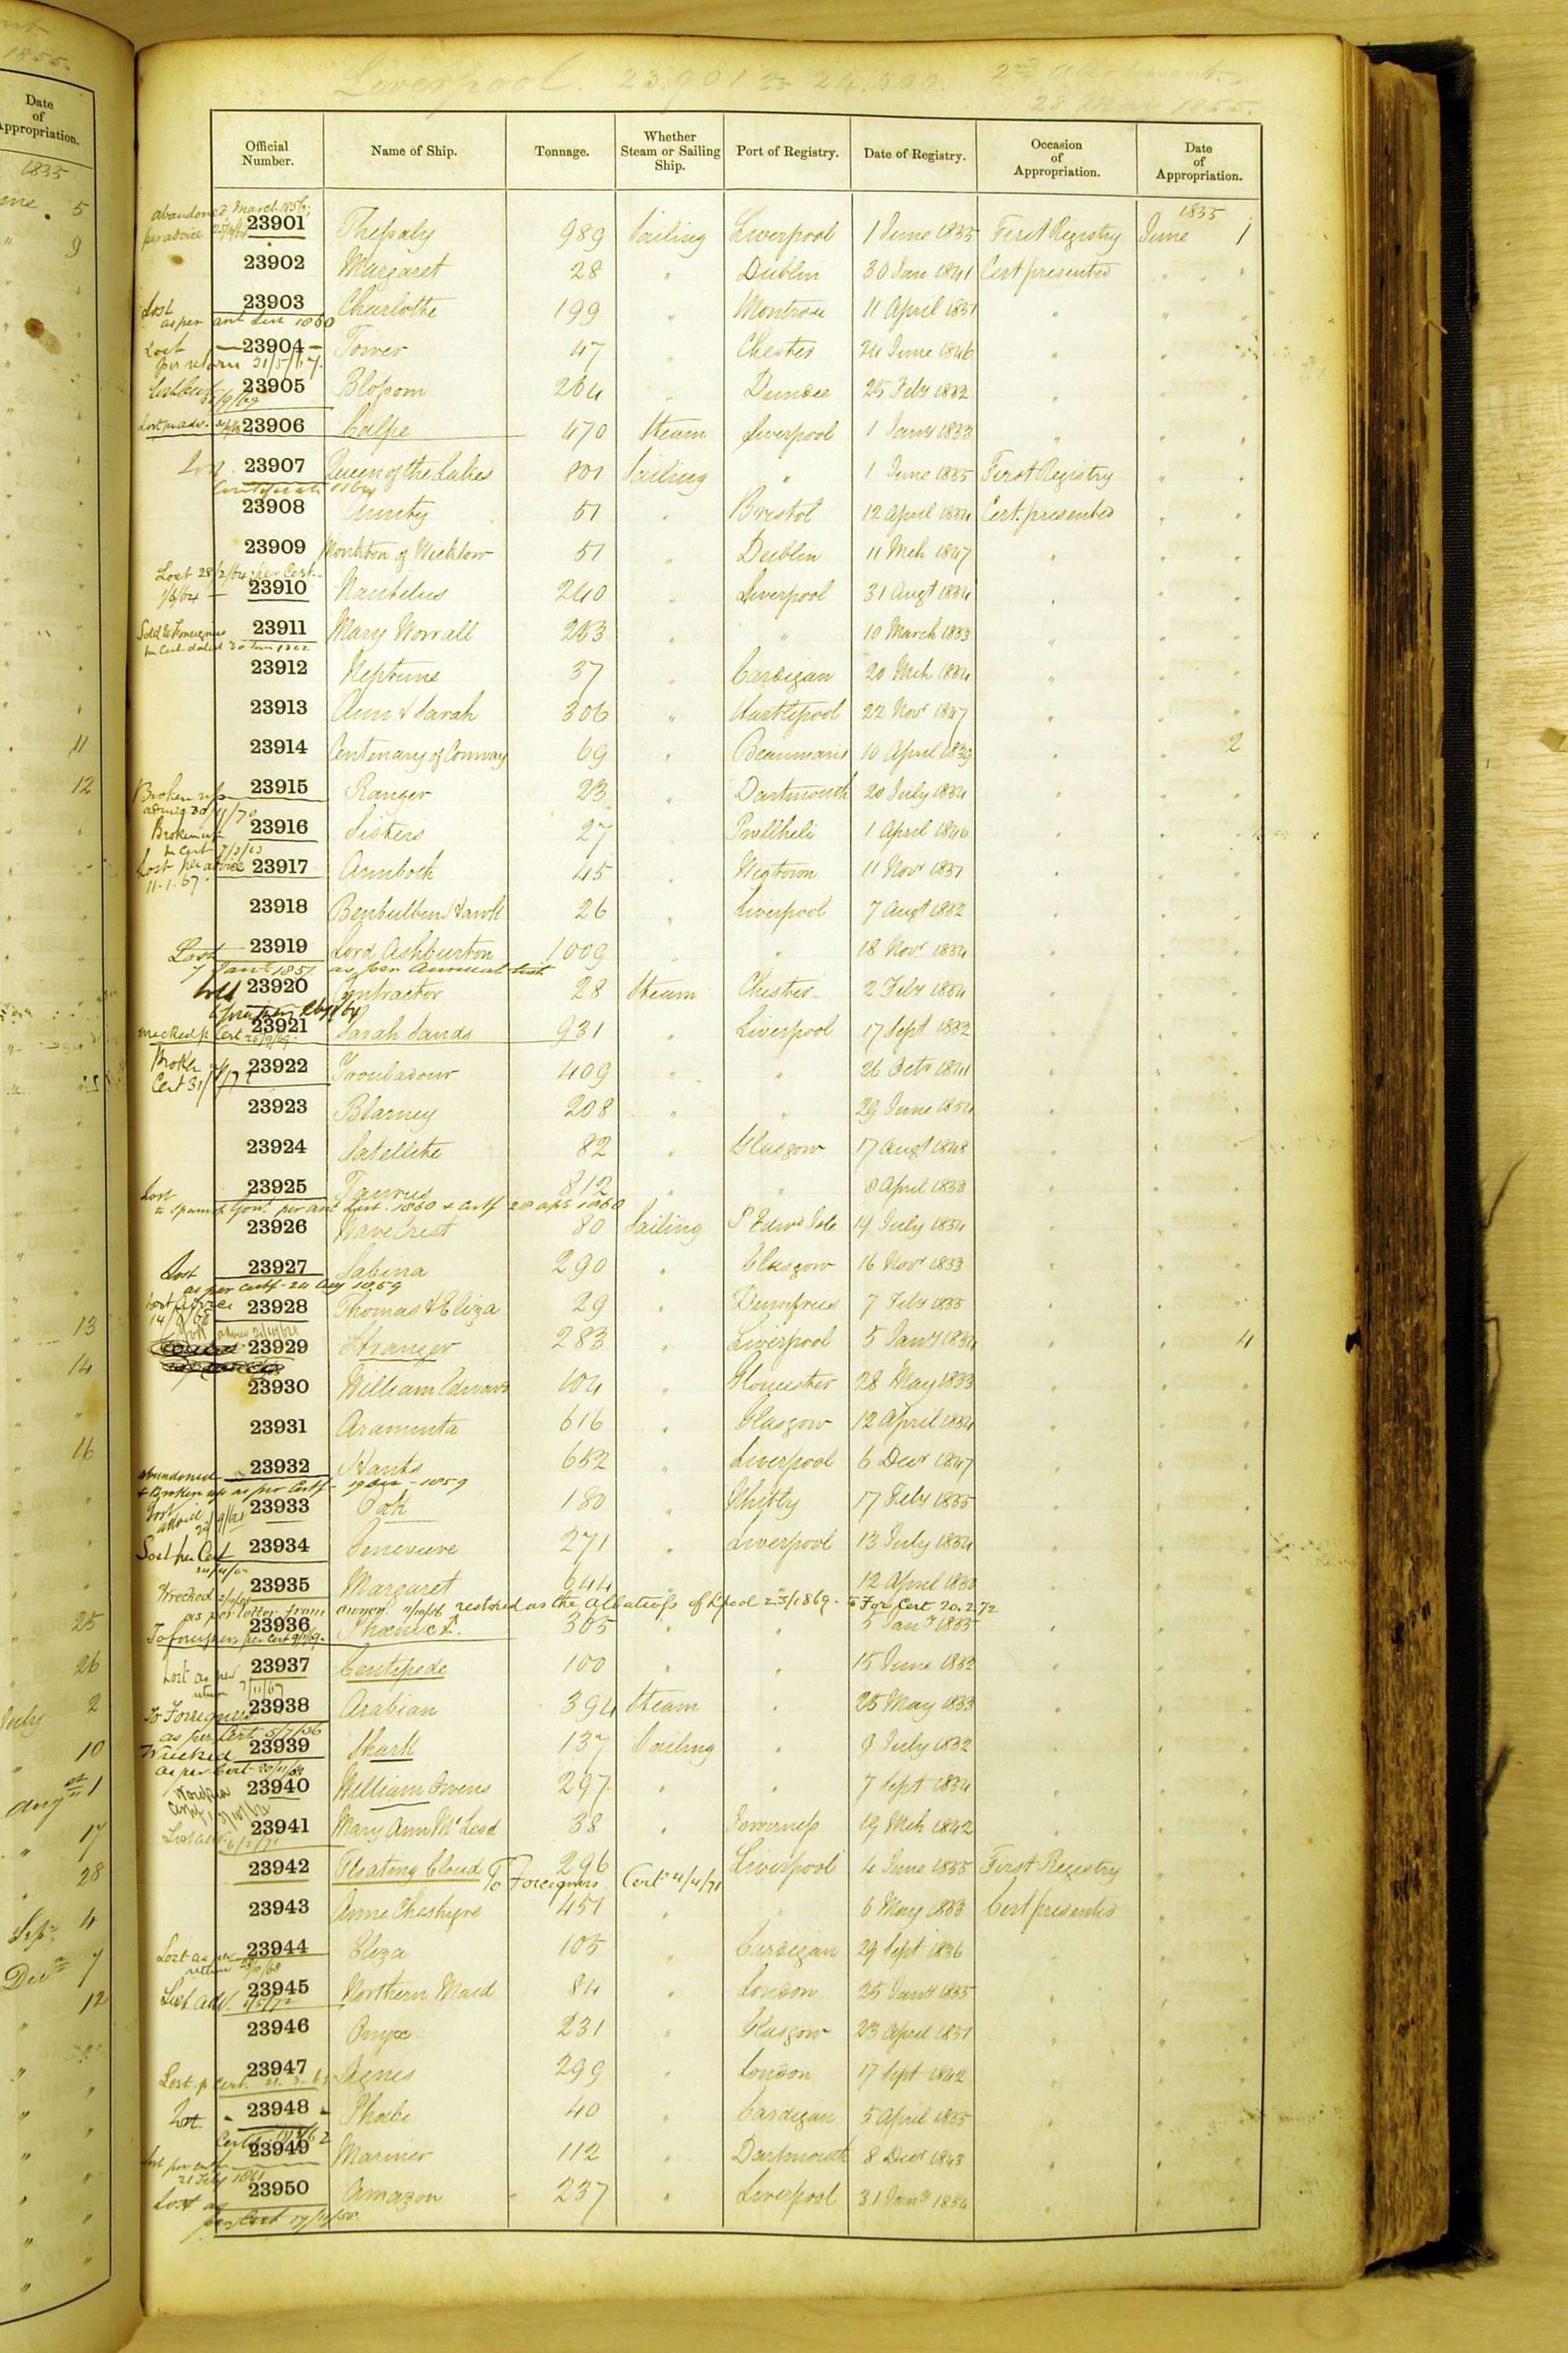 Liverpool. 23.901 to 24.000. 2nd Allotment.
28 May 1855.
Official Number. Name of Ship. Tonnage. Whether Steam or Sailing Ship. Port of Registry. Date of Registry. Occasion of Appropriation. Date of Appropriation.
1855
abandoned March 1856
per advice
23901 Thessaly 989 Sailing Liverpool 1 June 1855 First Registry June 1
23902 Margaret 28 " Dublin 30 Jan 1841 Cert presented " "
Lost 23903 Charlotte 199 " Montrose 11 April 1851 " " "
as per ann List 1860
Lost 23904 Tower 47 " Chester 24 June 1846 " " "
per return 31/5/67
23905 Blossom 264 " Dundee 25 Feby 1852 " " "
23906 Calpe 470 Steam Liverpool 1 Jany 1853 " " "
Lost 23907 Queen of the Lakes 801 Sailing " 1 June 1855 First Registry " "
Certificate
23908 51 " Bristol 12 April 1854 Cert. presented " "
23909 of Wicklow 51 " Dublin 11 Mch 1847 " " "
Lost 28/2/64 per Cert.
23910 Nautilus 240 " Liverpool 31 Augt 1854 " " "
Sold to Foreigners 23911 Mary Worrall 253 " " 10 March 1853 " " "
23912 Neptune 37 " Cardigan 20 Mch 1854 " " "
23913 Ann & Sarah 306 " Hartlepool 22 Novr 1847 " " "
23914 Centenary of Conway 69 " Beaumaris 10 April 1839 " " 2
Broken up 23915 Ranger 23 " Dartmouth 20 July 1854 " " "
advice 30/11/70
Broken up 23916 Sisters 27 " Pwllheli 1 April 1846 " " "
Lost per advice 23917 45 " Wigtown 11 Novr 1851 " " "
11-1-67
23918 26 " Liverpool 7 Augt 1852 " " "
Lost 23919 Lord Ashburton 1009 " " 18 Novr 1854 " " "
7 Jany 1857 as per Annual list
23920 Contractor 28 Steam Chester 2 Feby 1854 " " "
23921 Sarah Sands 931 " Liverpool 17 Sept 1852 " " "
Broke 23922 Troubadour 409 " " 26 Octr 1841 " " "
23923 Blarney 208 " " 29 June 1854 " " "
23924 Satellite 82 " Glasgow 17 Augt 1848 " " "
23925 Taurus 812 " " 8 April 1853 " " "
to Spanish Govt. per ann List. 1860 & Certf 20 apl 1860
23926 Wave Crest 80 Sailing P Edwd Isle 19 July 1854 " " "
Lost 23927 Sabina 290 " Glasgow 16 Novr 1853 " " "
as per Certf- 24 Aug 1859
23928 Thomas & Eliza 29 " Dumfries 7 Feby 1855 " " "
23929 Stranger 283 " Liverpool 5 Jany 1854 " " 4
23930 William Edward 104 " Gloucester 28 May 1853 " " "
23931 Araminta 616 " Glasgow 12 April 1854 " " "
abandoned 23932 Hants 652 " Liverpool 6 Decr 1847 " " "
& Broken up as per Certf- 1859
Lost 23933 Oak 180 " Whitby 17 Feby 1855 " " "
Lost per Cert 23934 Genevieve 271 " Liverpool 13 July 1854 " " "
Wrecked 23935 Margaret 644 " " 12 April 1850
as per letter from owner restored as the Albatross of Lpool 1869. To For Cert 20.2.72
To foreigners per Cert 23936 Phoenix 305 " " 5 Jany 1855 " " "
Lost as per 23937 Centipede 100 " " 15 June 1852 " " "
return 7/11/67
To Foreigners 23938 Arabian 394 Steam " 25 May 1853 " " "
as per Cert 5/7/56
Wrecked 23939 Shark 137 Sailing " 9 July 1852 " " "
as per Cert-
23940 William Owens 297 " " 7 Sept 1854 " " "
23941 Mary Ann McLeod 38 " Inverness 19 Mch 1842 " " "
23942 Floating Cloud 296 " Liverpool 4 June 1855 First Registry " "
To Foreigners Cert 4/4/71
23943 Anne Cheshyre 451 " " 6 May 1853 Cert presented " "
Lost as per 23944 Eliza 105 " Cardigan 29 Sept 1836 " " "
return
Lost adv. 23945 Northern Maid 84 " London 25 Jany 1855 " " "
23946 Onyx 231 " Glasgow 23 April 1851 " " "
Lost p Cert. 23947 Agnes 299 " London 17 Sept 1842 " " "
Lost 23948 Phoebe 40 " Cardigan 5 April 1855 " " "
23949 Mariner 112 " Dartmouth 8 Decr 1843 " " "
Lost per cert
21 Feby 1861
Lost as 23950 Amazon 237 " Liverpool 31 Jany 1854 " " "
per Cert